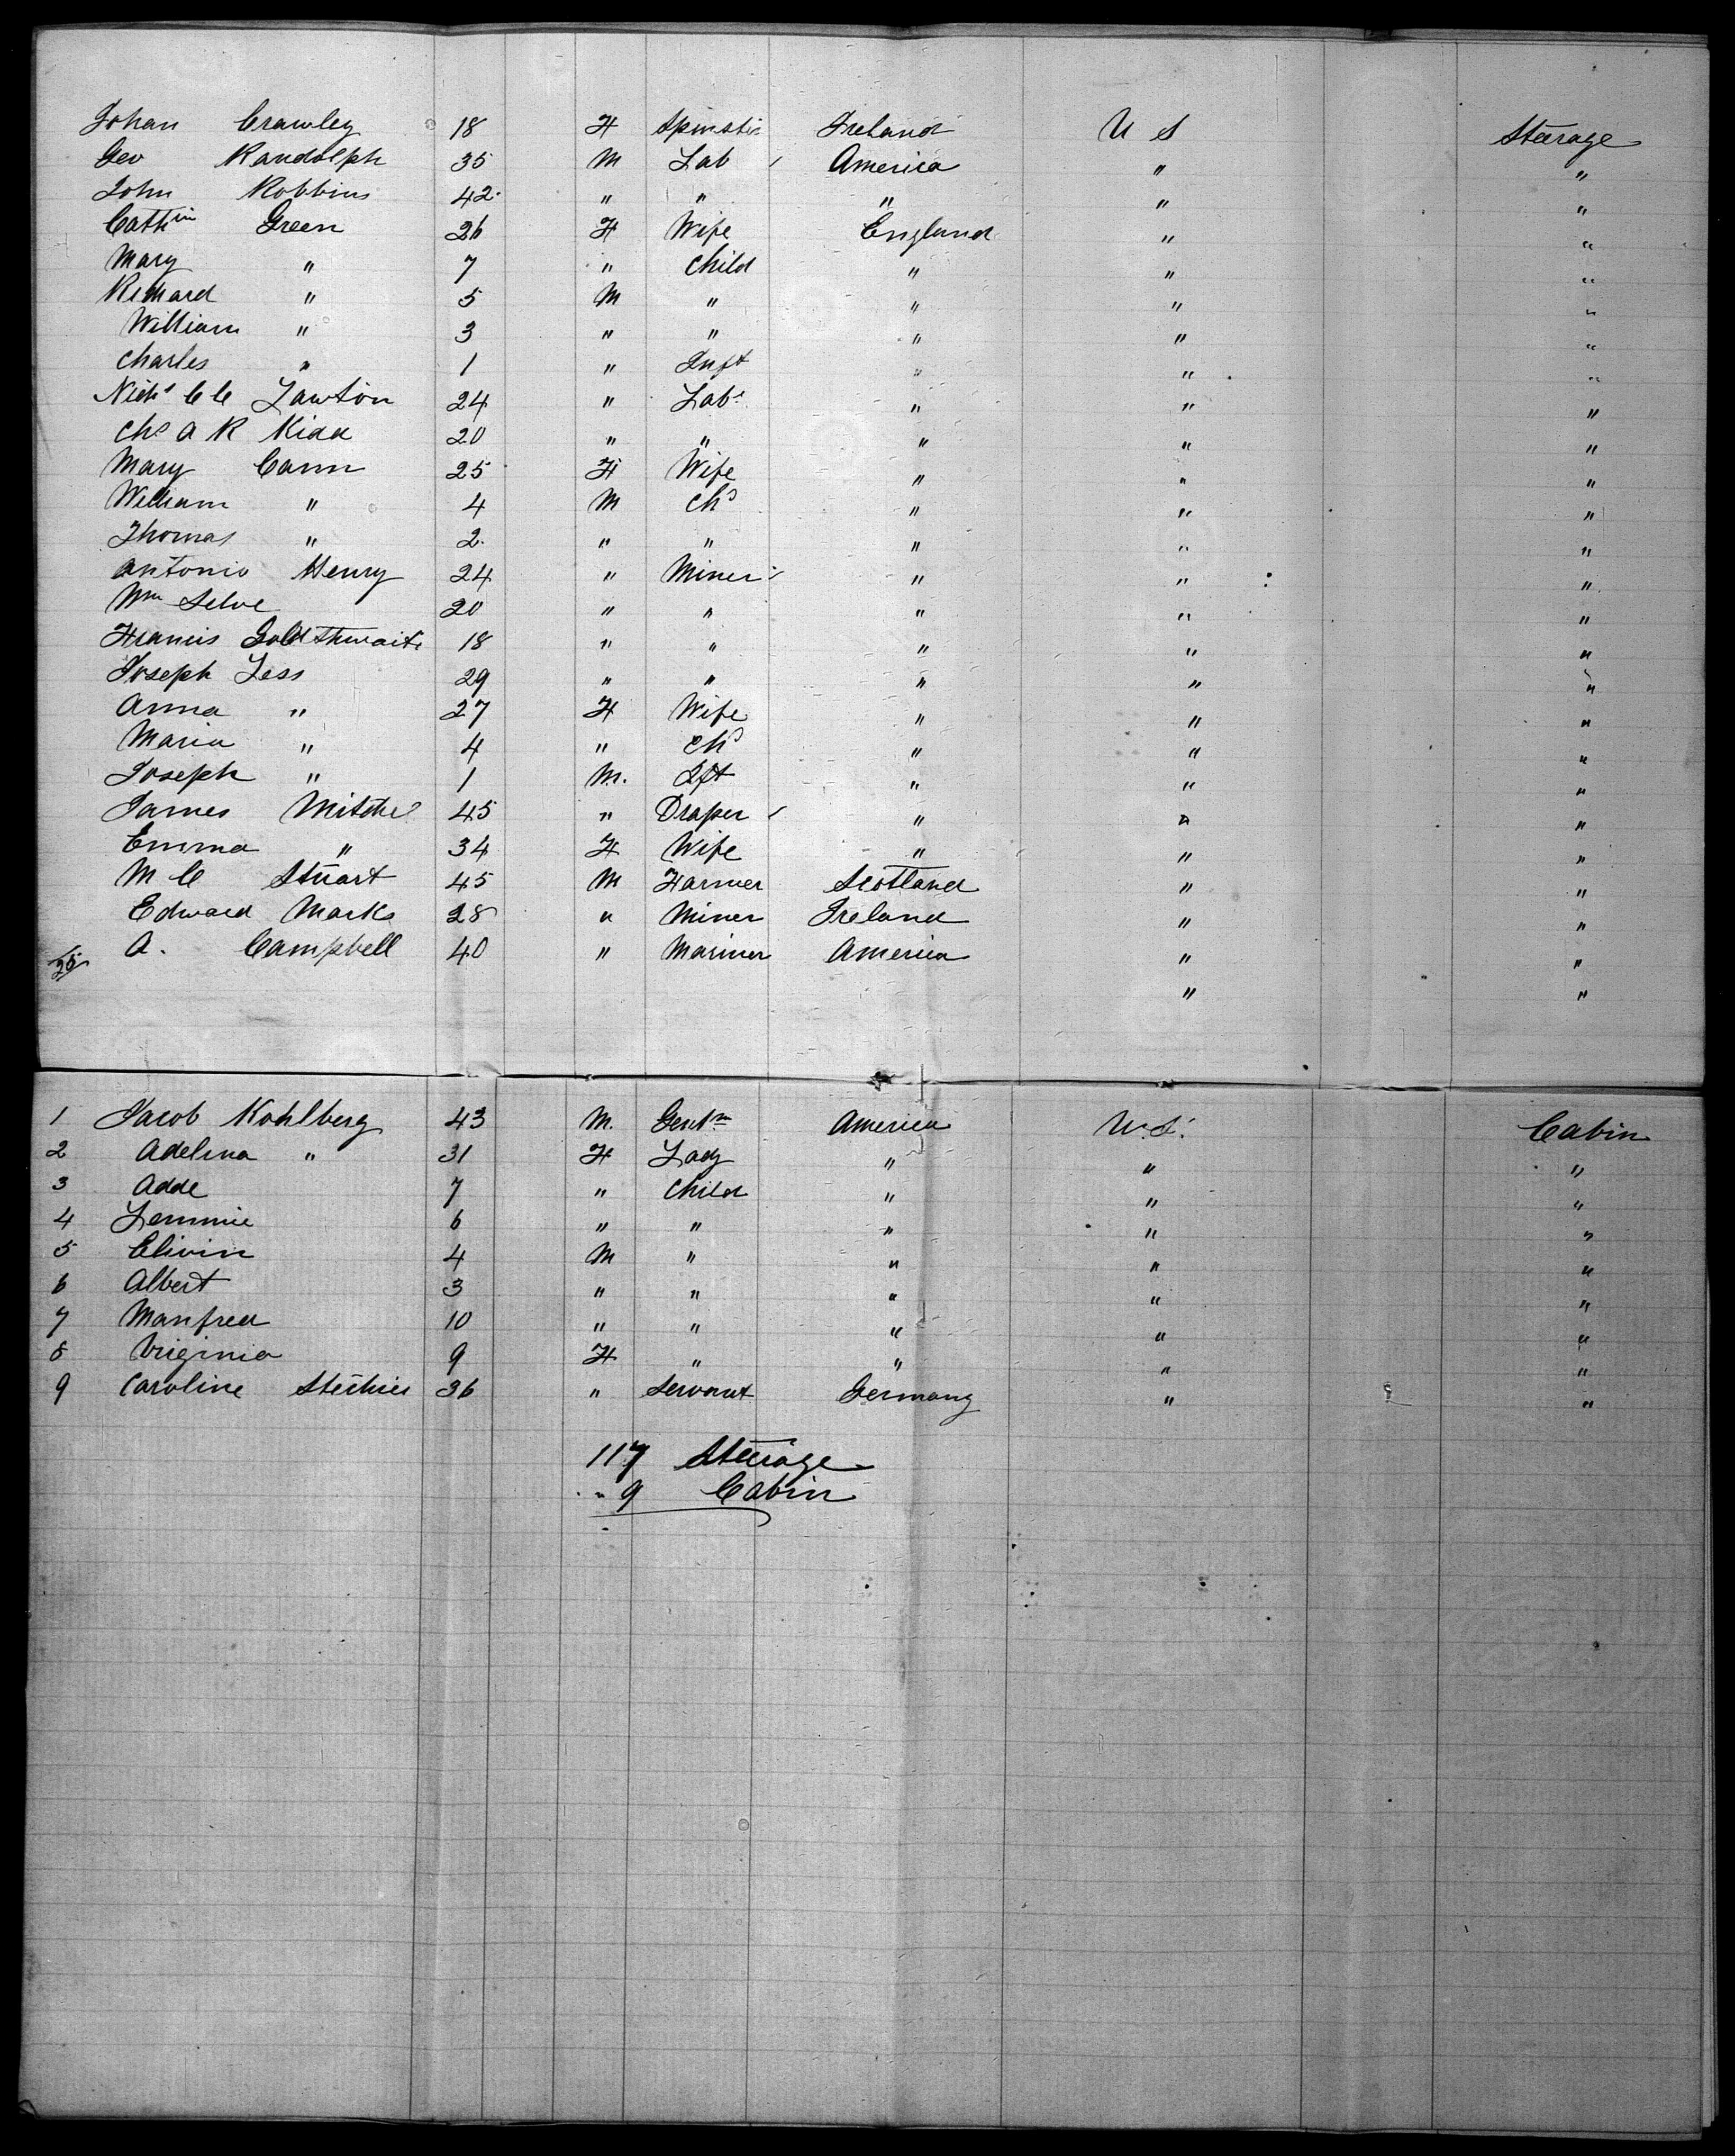 Johan Crawley 18 F Spinster Ireland U S Steerage
Geo Randolph 35 M Lab America " "
John Robbins 42 " " " " "
Cathin Green 26 F Wife England " "
Mary " 7 " Child " " "
Richard " 5 M " " " "
William " 3 " " " " "
Charles " 1 " Inft " " "
Nichs C C Lawton 24 " Labr " " "
Chs A R Kidd 20 " " " " "
Mary Cann 25 F Wife " " "
William " 4 M Chd " " "
Thomas " 2 " " " " "
Antonio Henry 24 " Miner " " "
Wm Selve 20 " " " " "
Francis Goldthwaite 18 " " " " "
Joseph Less 29 " " " " "
Anna " 27 F Wife " " "
Maria " 4 " Chd " " "
Joseph " 1 M. Ift " " "
James Mitchel 45 " Draper " " "
Emma " 34 F Wife " " "
M C Stuart 45 M Farmer Scotland " "
Edward Marks 28 " Miner Ireland " "
25 A. Campbell 40 " Mariner America " "
" "
1 Jacob Kohlberg 43 M. Gentn America U.S. Cabin
2 Adelina " 31 F Lady " " "
3 Adde 7 " Child " " "
4 Lemmie 6 " " " " "
5 Elivin 4 M " " " "
6 Albert 3 " " " " "
7 Manfred 10 " " " " "
8 Virginia 9 F " " " "
9 Caroline 36 " Servant Germany " "
117 Steerage
" 9 Cabin